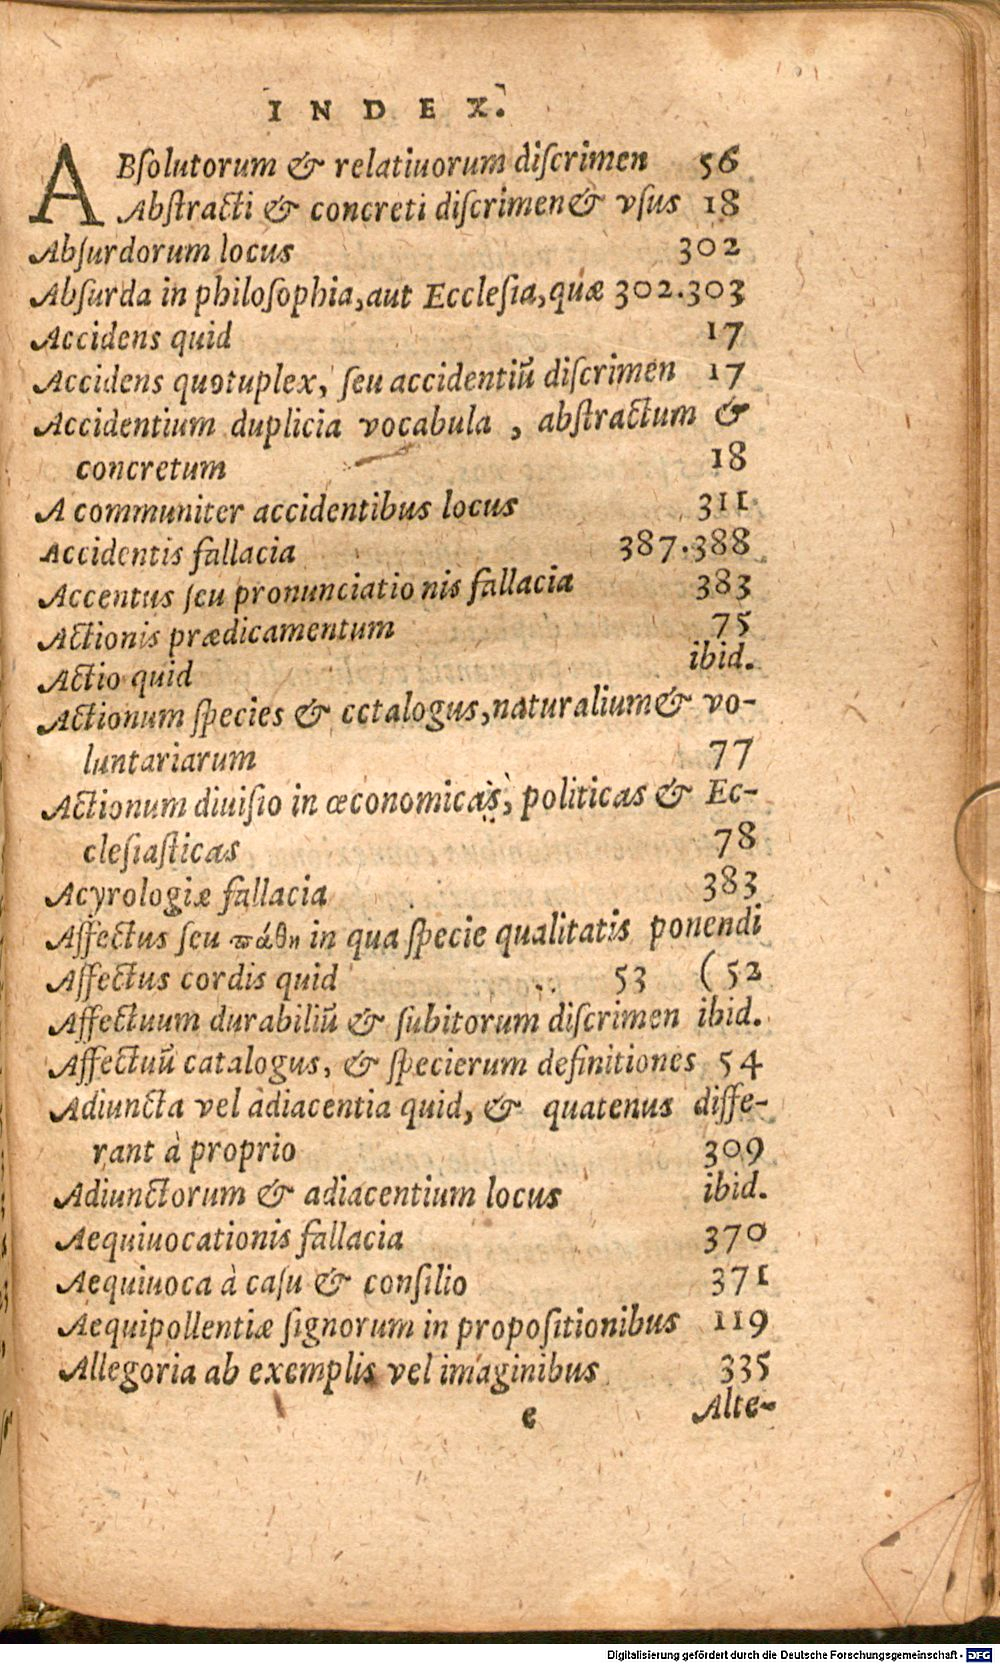 INDEX.
ABſolutorum & relatiuorum diſcrimen 56
Abſtracti & concreti diſcrimen & vſus 18
Abſurdorum locus 302
Abſurda in philoſophia, aut Eccleſia, quæ 302.303
Accidens quid 17
Accidens quotuplex, ſeu accidentiũ diſcrimen 17
Accidentium duplicia vocabula , abſtractum &
concretum 18
A communiter accidentibus locus 311
Accidentis fallacia 387.388
Accentus ſeu pronunciationis fallacia 383
Actionis prædicamentum 75
Actio quid ibid.
Actionum ſpecies & cctalogus, naturalium & vo-
luntariarum 77
Actionum diuiſio in œconomicas, politicas & Ec-
cleſiaſticas 78
Acyrologiæ fallacia 383
Affectus ſeu πάθη in qua ſpecie qualitatis ponendi
Affectus cordis quid 53 (52
Affectuum durabiliũ & ſubitorum diſcrimen ibid.
Affectuũ catalogus, & ſpecierum definitiones 54
Adiuncta vel adiacentia quid, & quatenus diffe-
rant à proprio 309
Adiunctorum & adiacentium locus ibid.
Aequiuocationis fallacia 370
Aequiuoca à caſu & conſilio 371
Aequipollentiæ ſignorum in propoſitionibus 119
Allegoria ab exemplis vel imaginibus 335
e Alte-
Digitalisierung gefördert durch die Deutsche Forschungsgemeinschaft - DFG